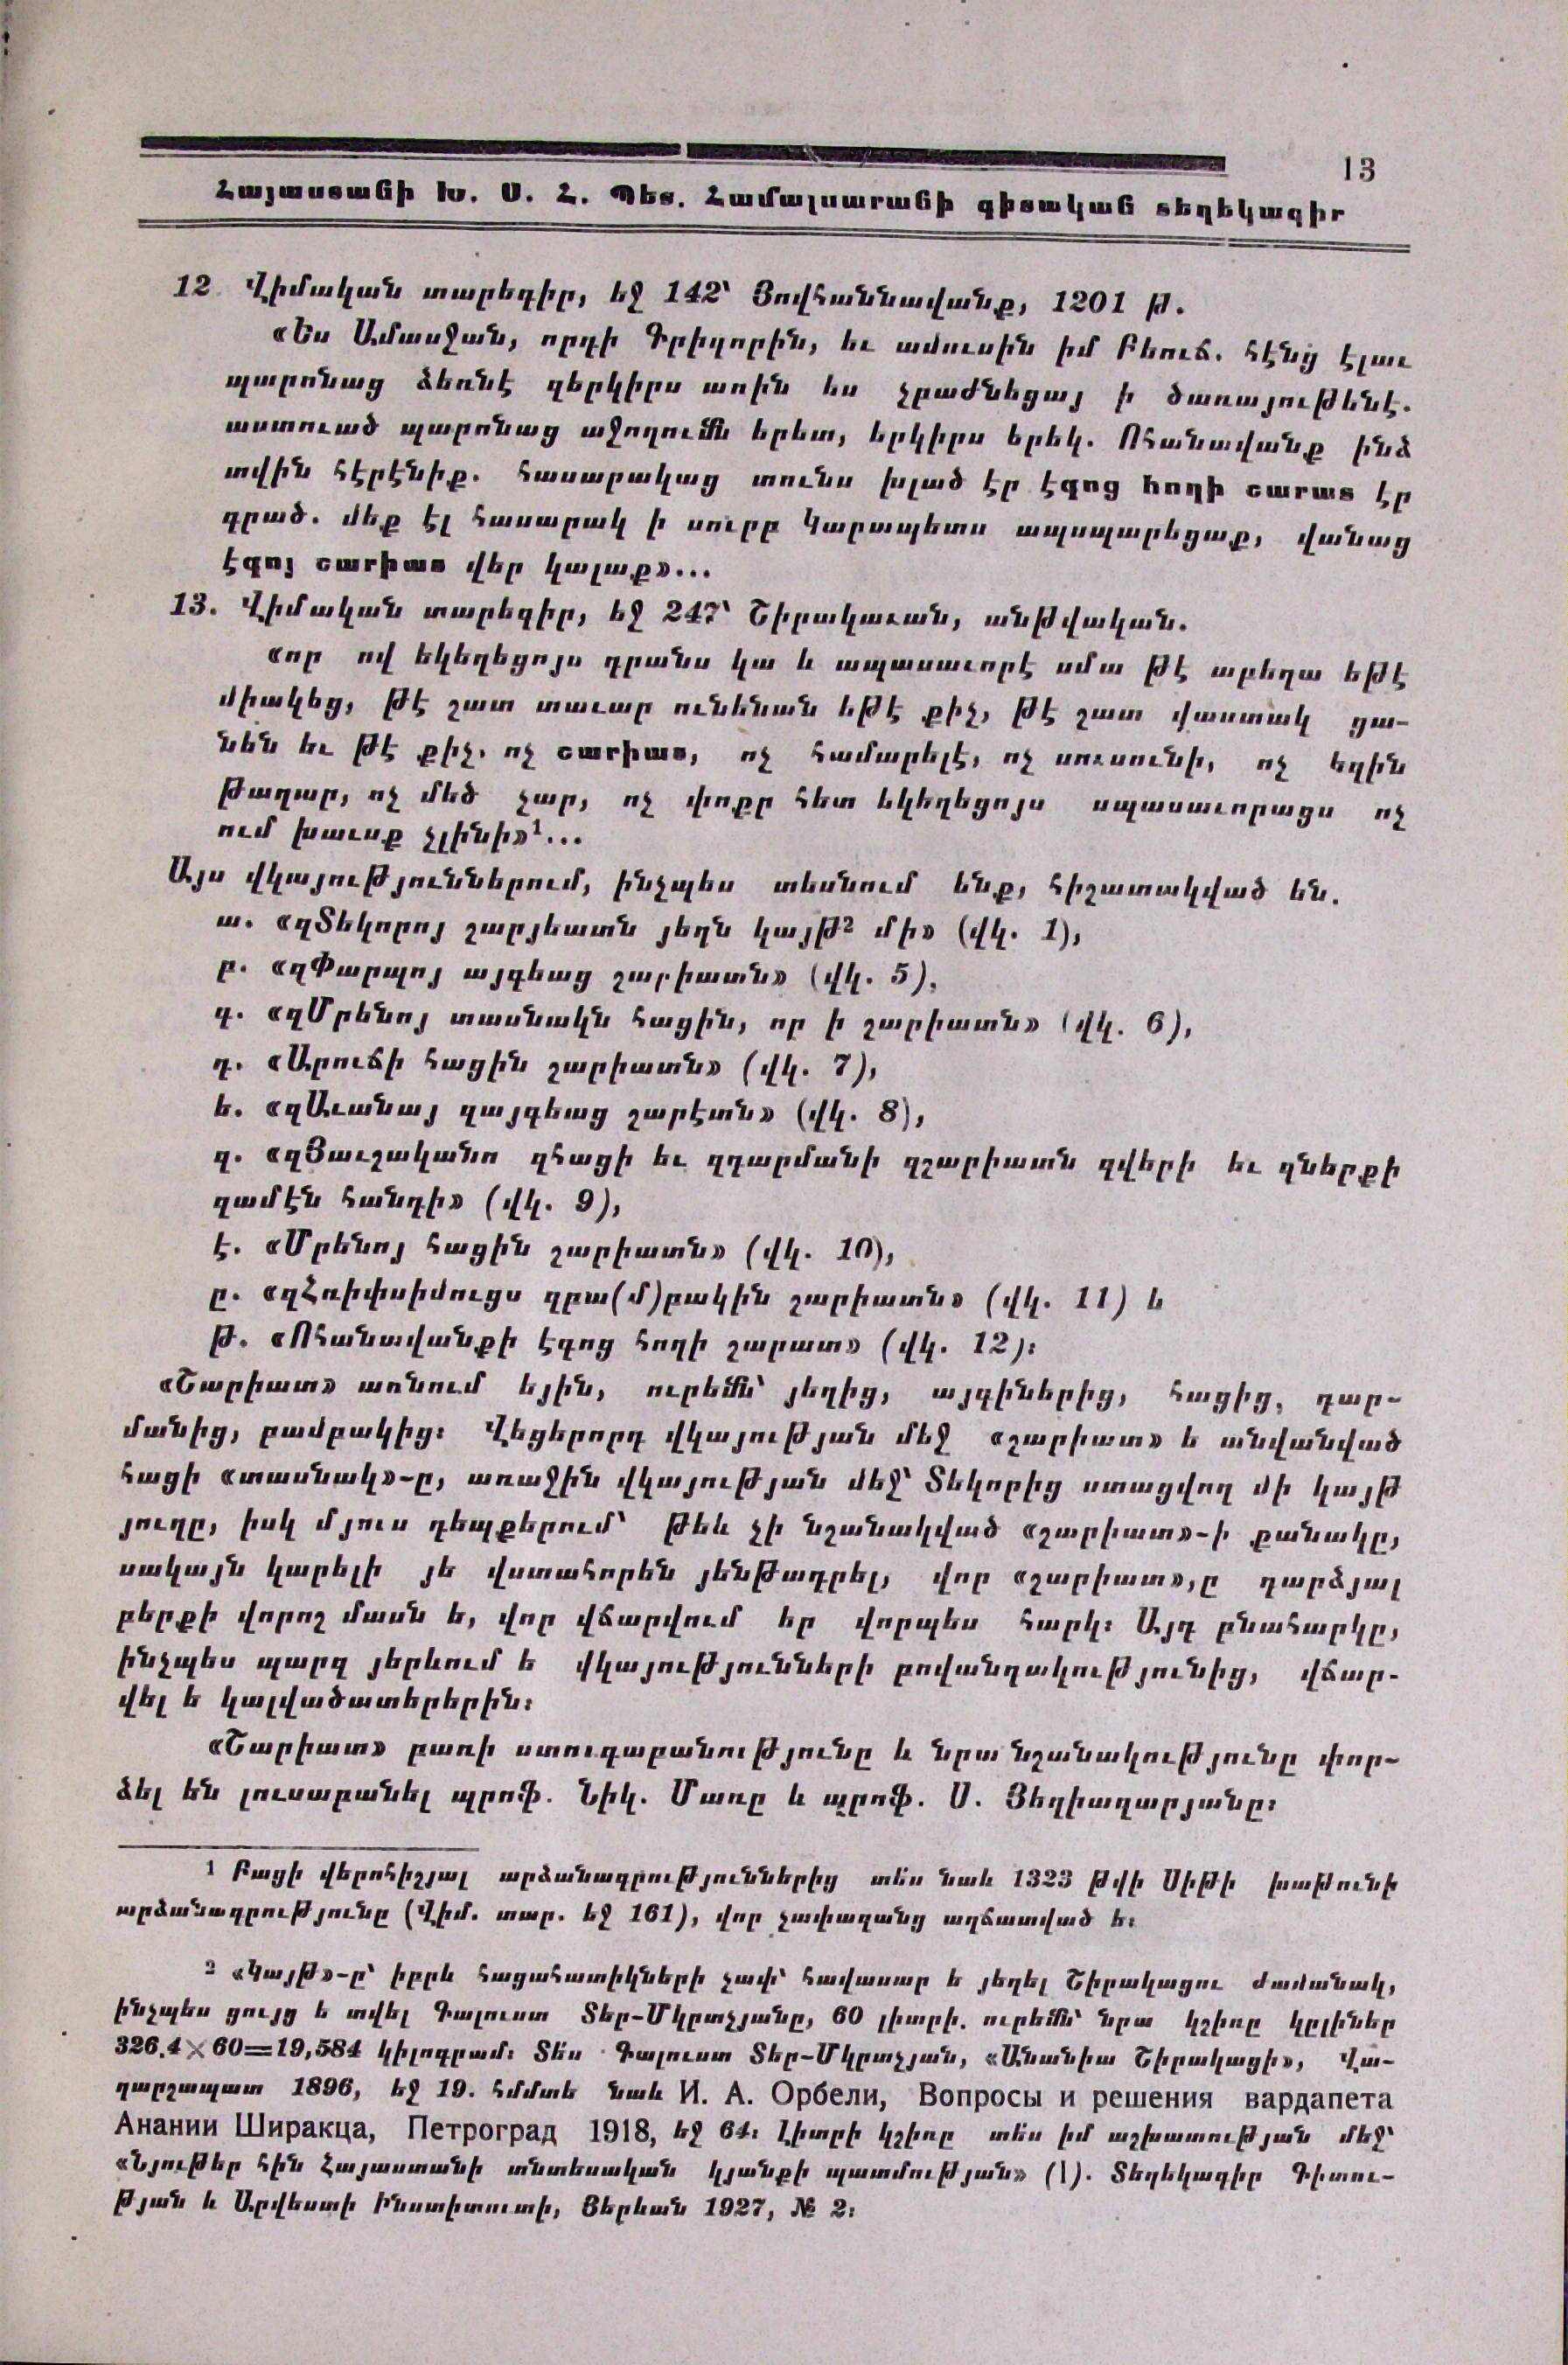 13
Հայաստանի Խ. Ս. Հ. Պետ. Համալսարանի գիտական տեղեկագիր
12 Վիմական տարեգիր, եջ 142՝ Յովհաննավանք, 1201 թ.
«Ես Ամասջան, որդի Գրիգորին, եւ ամուսին իմ Բեուճ. հէնց էլաւ
պարոնաց ձեռնէ զերկիրս առին ես չբաժնեցայ ի ծառայութենէ.
աստուած պարոնաց աջողումն երետ, երկիրս երեկ. Ոհանավանք ինձ
տվին հէրէնիք. հասարակաց տունս խլած էր էգոց հողի շարատ էր
դրած. մեք էլ հասարակ ի սուրբ Կարապետս ապսպարեցաք, վանաց
էգոյ շարիատ վեր կալաք»...
13. Վիմական տարեգիր, եջ 247՝ Շիրակաւան, անթվական.
«որ ով եկեղեցոյս դրանս կա և ապասաւորէ սմա թէ աբեղա եթէ
միակեց, թէ շատ տաւար ունենան եթէ քիչ, թէ շատ վաստակ ցա-
նեն եւ թէ քիչ. ոչ շարիատ, ոչ համարելէ, ոչ սուսունի, ոչ եզին
թաղար, ոչ մեծ չար, ոչ փոքր հետ եկեղեցոյս սպասաւորացս ոչ
ում խաւսք չլինի»¹...
Այս վկայություններում, ինչպես տեսնում ենք, հիշատակված են.
ա. «զՏեկորոյ շարյեատն յեղն կայթ² մի» (վկ. 1),
բ. «զՓարպոյ այգեաց շարիատն» (վկ. 5),
գ. «զՄրենոյ տասնակն հացին, որ ի շարիատն» (վկ. 6),
դ. «Արուճի հացին շարիատն» (վկ. 7),
ե. «զԱւանայ զայգեաց շարէտն» (վկ. 8),
զ. «զՅաւշականո զհացի եւ զդարմանի զշարիատն զվերի եւ զներքի
զամէն հանդի» (վկ. 9),
է. «Մրենոյ հացին շարիատն» (վկ. 10),
ը. «զՀռիփսիմուցս զբա(մ)բակին շարիատն» (վկ. 11) և
թ. «Ոհանավանքի էգոց հողի շարատ» (վկ. 12)։
«Շարիատ» առնում եյին, ուրեմն՝ յեղից, այգիներից, հացից, դար-
մանից, բամբակից։ Վեցերորդ վկայության մեջ «շարիատ» ե անվանված
հացի «տասնակ»-ը, առաջին վկայության մեջ՝ Տեկորից ստացվող մի կայթ
յուղը, իսկ մյուս դեպքերում՝ թեև չի նշանակված «շարիատ»-ի քանակը,
սակայն կարելի յե վստահորեն յենթադրել, վոր «շարիատ»,ը դարձյալ
բերքի վորոշ մասն ե, վոր վճարվում եր վորպես հարկ։ Այդ բնահարկը,
ինչպես պարզ յերևում ե վկայությունների բովանդակությունից, վճար-
վել ե կալվածատերերին։
«Շարիատ» բառի ստուգաբանությունը և նրա նշանակությունը փոր-
ձել են լուսաբանել պրոֆ. Նիկ. Մառը և պրոֆ. Ս. Յեղիազարյանը։
¹ Բացի վերոհիշյալ արձանագրություններից տե՛ս նաև 1323 թվի Սիթի խաթունի
արձանագրությունը (Վիմ. տար. եջ 161), վոր չափազանց աղճատված ե։
² «Կայթ»-ը՝ իբրև հացահատիկների չափ՝ հավասար ե յեղել Շիրակացու ժամանակ,
ինչպես ցույց ե տվել Գալուստ Տեր-Մկրտչյանը, 60 լիտրի. ուրեմն՝ նրա կշիռը կըլիներ
326.4×60=19,584 կիլոգրամ։ Տե՛ս Գալուստ Տեր-Մկրտչյան, «Անանիա Շիրակացի», Վա-
ղարշապատ 1896, եջ 19. հմմտե նաև И. А. Орбели, Вопросы и решения вардапета
Анании Ширакца, Петроград 1918, եջ 64։ Լիտրի կշիռը տե՛ս իմ աշխատության մեջ՝
«Նյութեր հին Հայաստանի տնտեսական կյանքի պատմության» (I). Տեղեկագիր Գիտու-
թյան և Արվեստի Ինստիտուտի, Յերևան 1927, № 2։